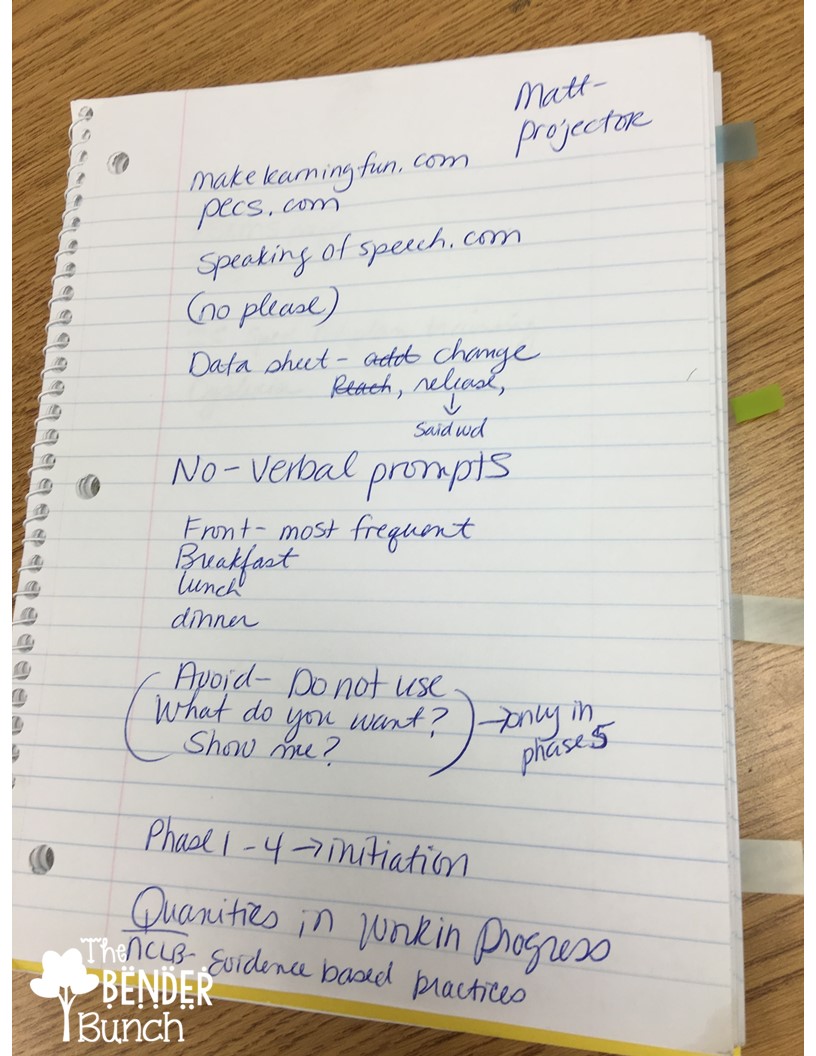 Matt-
projector
makelearningfun.com
pecs.com
Speaking of speech.com
(no please)
Data sheet - add change
Reach, release,
↓
Said wd
No - Verbal prompts
Front - most frequent
Breakfast
lunch
dinner
Avoid - Do not use
What do you want? →only in
Show me? phase 5
Phase 1 - 4 → initiation
Quanities in Work in Progress
NCLB - Evidence based practices
The
BENDER
Bunch